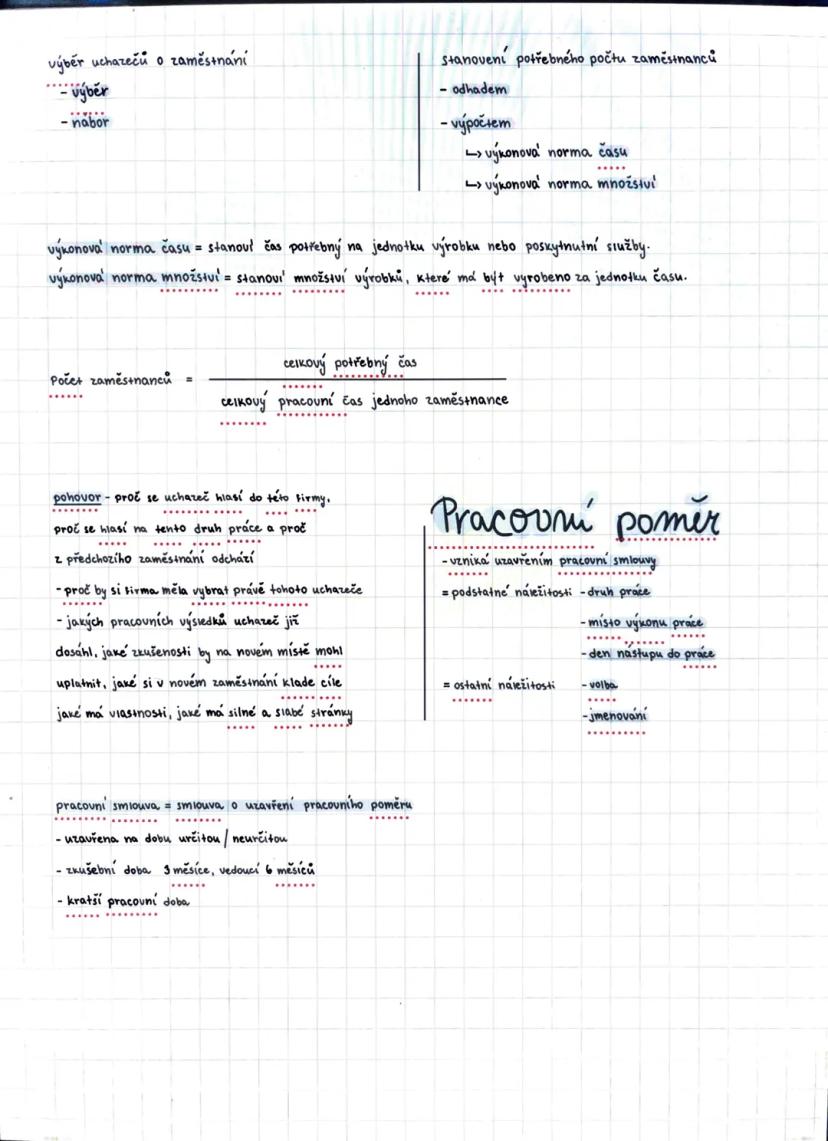 výběr uchazečů o zaměstnání
- výběr
- nábor
stanovení potřebného počtu zaměstnanců
- odhadem
- výpočtem
↳ výkonová norma času
↳ výkonová norma množství
výkonová norma času = stanoví čas potřebný na jednotku výrobku nebo poskytnutní služby.
výkonová norma množství = stanoví množství výrobků, které má být vyrobeno za jednotku času.
Počet zaměstnanců =
celkový potřebný čas
celkový pracovní čas jednoho zaměstnance
pohovor - proč se uchazeč hlásí do této firmy,
proč se hlásí na tento druh práce a proč
z předchozího zaměstnání odchází
- proč by si firma měla vybrat právě tohoto uchazeče
- jakých pracovních výsledků uchazeč již
dosáhl, jaké zkušenosti by na novém místě mohl
uplatnit, jaké si v novém zaměstnání klade cíle
jaké má vlastnosti, jaké má silné a slabé stránky
Pracovní poměr
- vzniká uzavřením pracovní smlouvy
= podstatné náležitosti - druh práce
- místo výkonu práce
- den nástupu do práce
= ostatní náležitosti - volba
- jmenování
pracovní smlouva = smlouva o uzavření pracovního poměru
- uzavřena na dobu určitou / neurčitou
- zkušební doba 3 měsíce, vedoucí 6 měsíců
- kratší pracovní doba